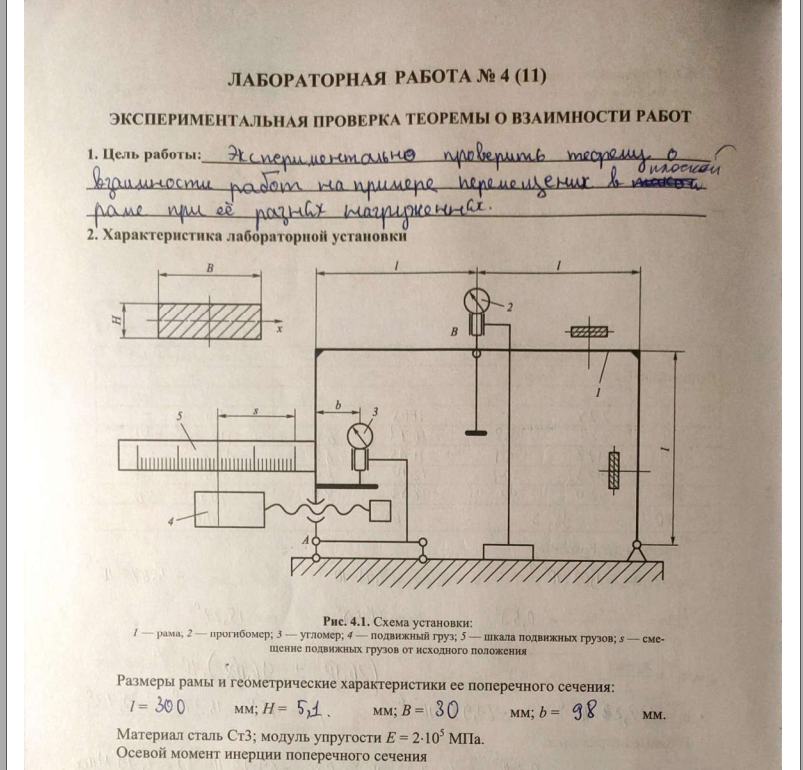 ЛАБОРАТОРНАЯ РАБОТА № 4 (11)
ЭКСПЕРИМЕНТАЛЬНАЯ ПРОВЕРКА ТЕОРЕМЫ О ВЗАИМНОСТИ РАБОТ
1. Цель работы: Экспериментально проверить теорему о
взаимности работ на примере перемещених в плоской
раме при её разных нагруженных.
2. Характеристика лабораторной установки
B
l
l
H
x
2
B
1
b
3
5
s
l
4
A
Рис. 4.1. Схема установки:
1 — рама, 2 — прогибомер; 3 — угломер; 4 — подвижный груз; 5 — шкала подвижных грузов; s — сме-
щение подвижных грузов от исходного положения
Размеры рамы и геометрические характеристики ее поперечного сечения:
l = 300 мм; H = 5,1 . мм; B = 30 мм; b = 98 мм.
Материал сталь Ст3; модуль упругости E = 2·10⁵ МПа.
Осевой момент инерции поперечного сечения